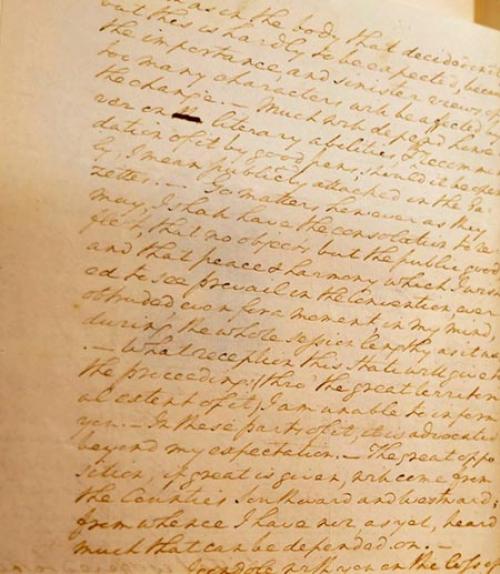 as in the body that decided on it
but this is hardly to be expected, beca
the importance, and sinister views of
too many characters will be affected by
the change. — Much will depend howe-
ver on literary abilities, & recomme
dation of it by good pens, should it be open
ly, I mean publicly attacked in the Ga-
zettes. — Go matters however as they
may, I shall have the consolation to re
flect, that no object but the public good
and that peace & harmony which I wish
ed to see prevail in the Convention ever
obtruded even for a moment, in my mind,
during the whole session lengthy as it was
— What reception this State will give
the proceedings (thro' the great territor
al extent of it) I am unable to inform
you. — In these parts of it, it is advocated
beyond my expectation. — The great oppo
sition, if great is given, will come from
the Counties Southward and Westward;
from whence I have not, as yet, heard
much that can be depended on. —
I condole with you on the loss of